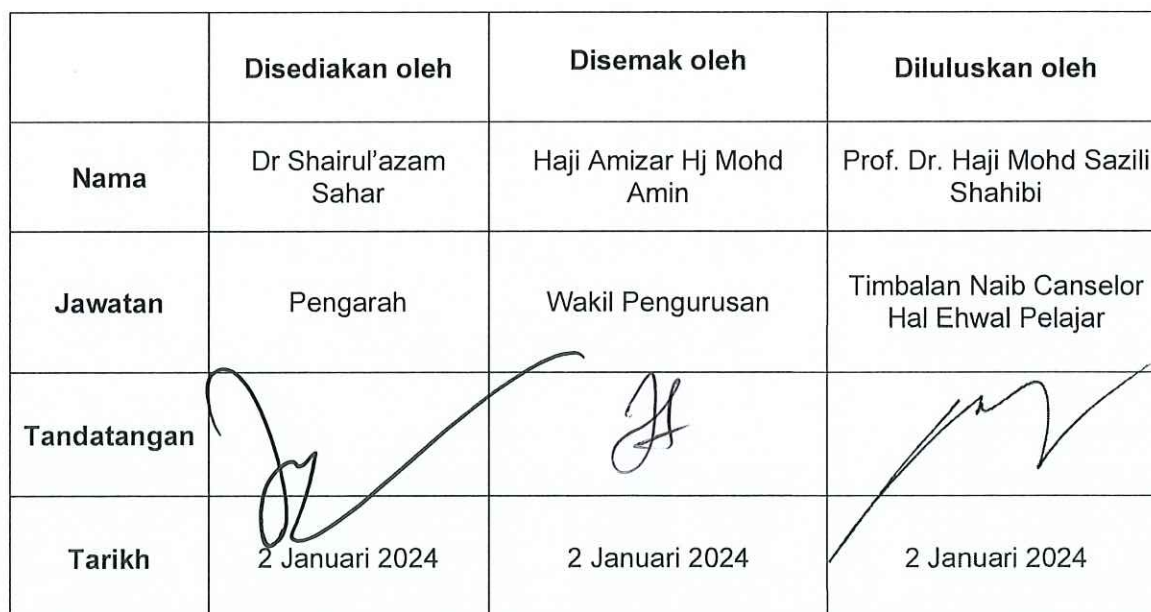 Disediakan oleh Disemak oleh Diluluskan oleh
Nama Dr Shairul'azam Haji Amizar Hj Mohd Prof. Dr. Haji Mohd Sazili
Sahar Amin Shahibi
Jawatan Pengarah Wakil Pengurusan Timbalan Naib Canselor
Hal Ehwal Pelajar
Tandatangan
Tarikh 2 Januari 2024 2 Januari 2024 2 Januari 2024